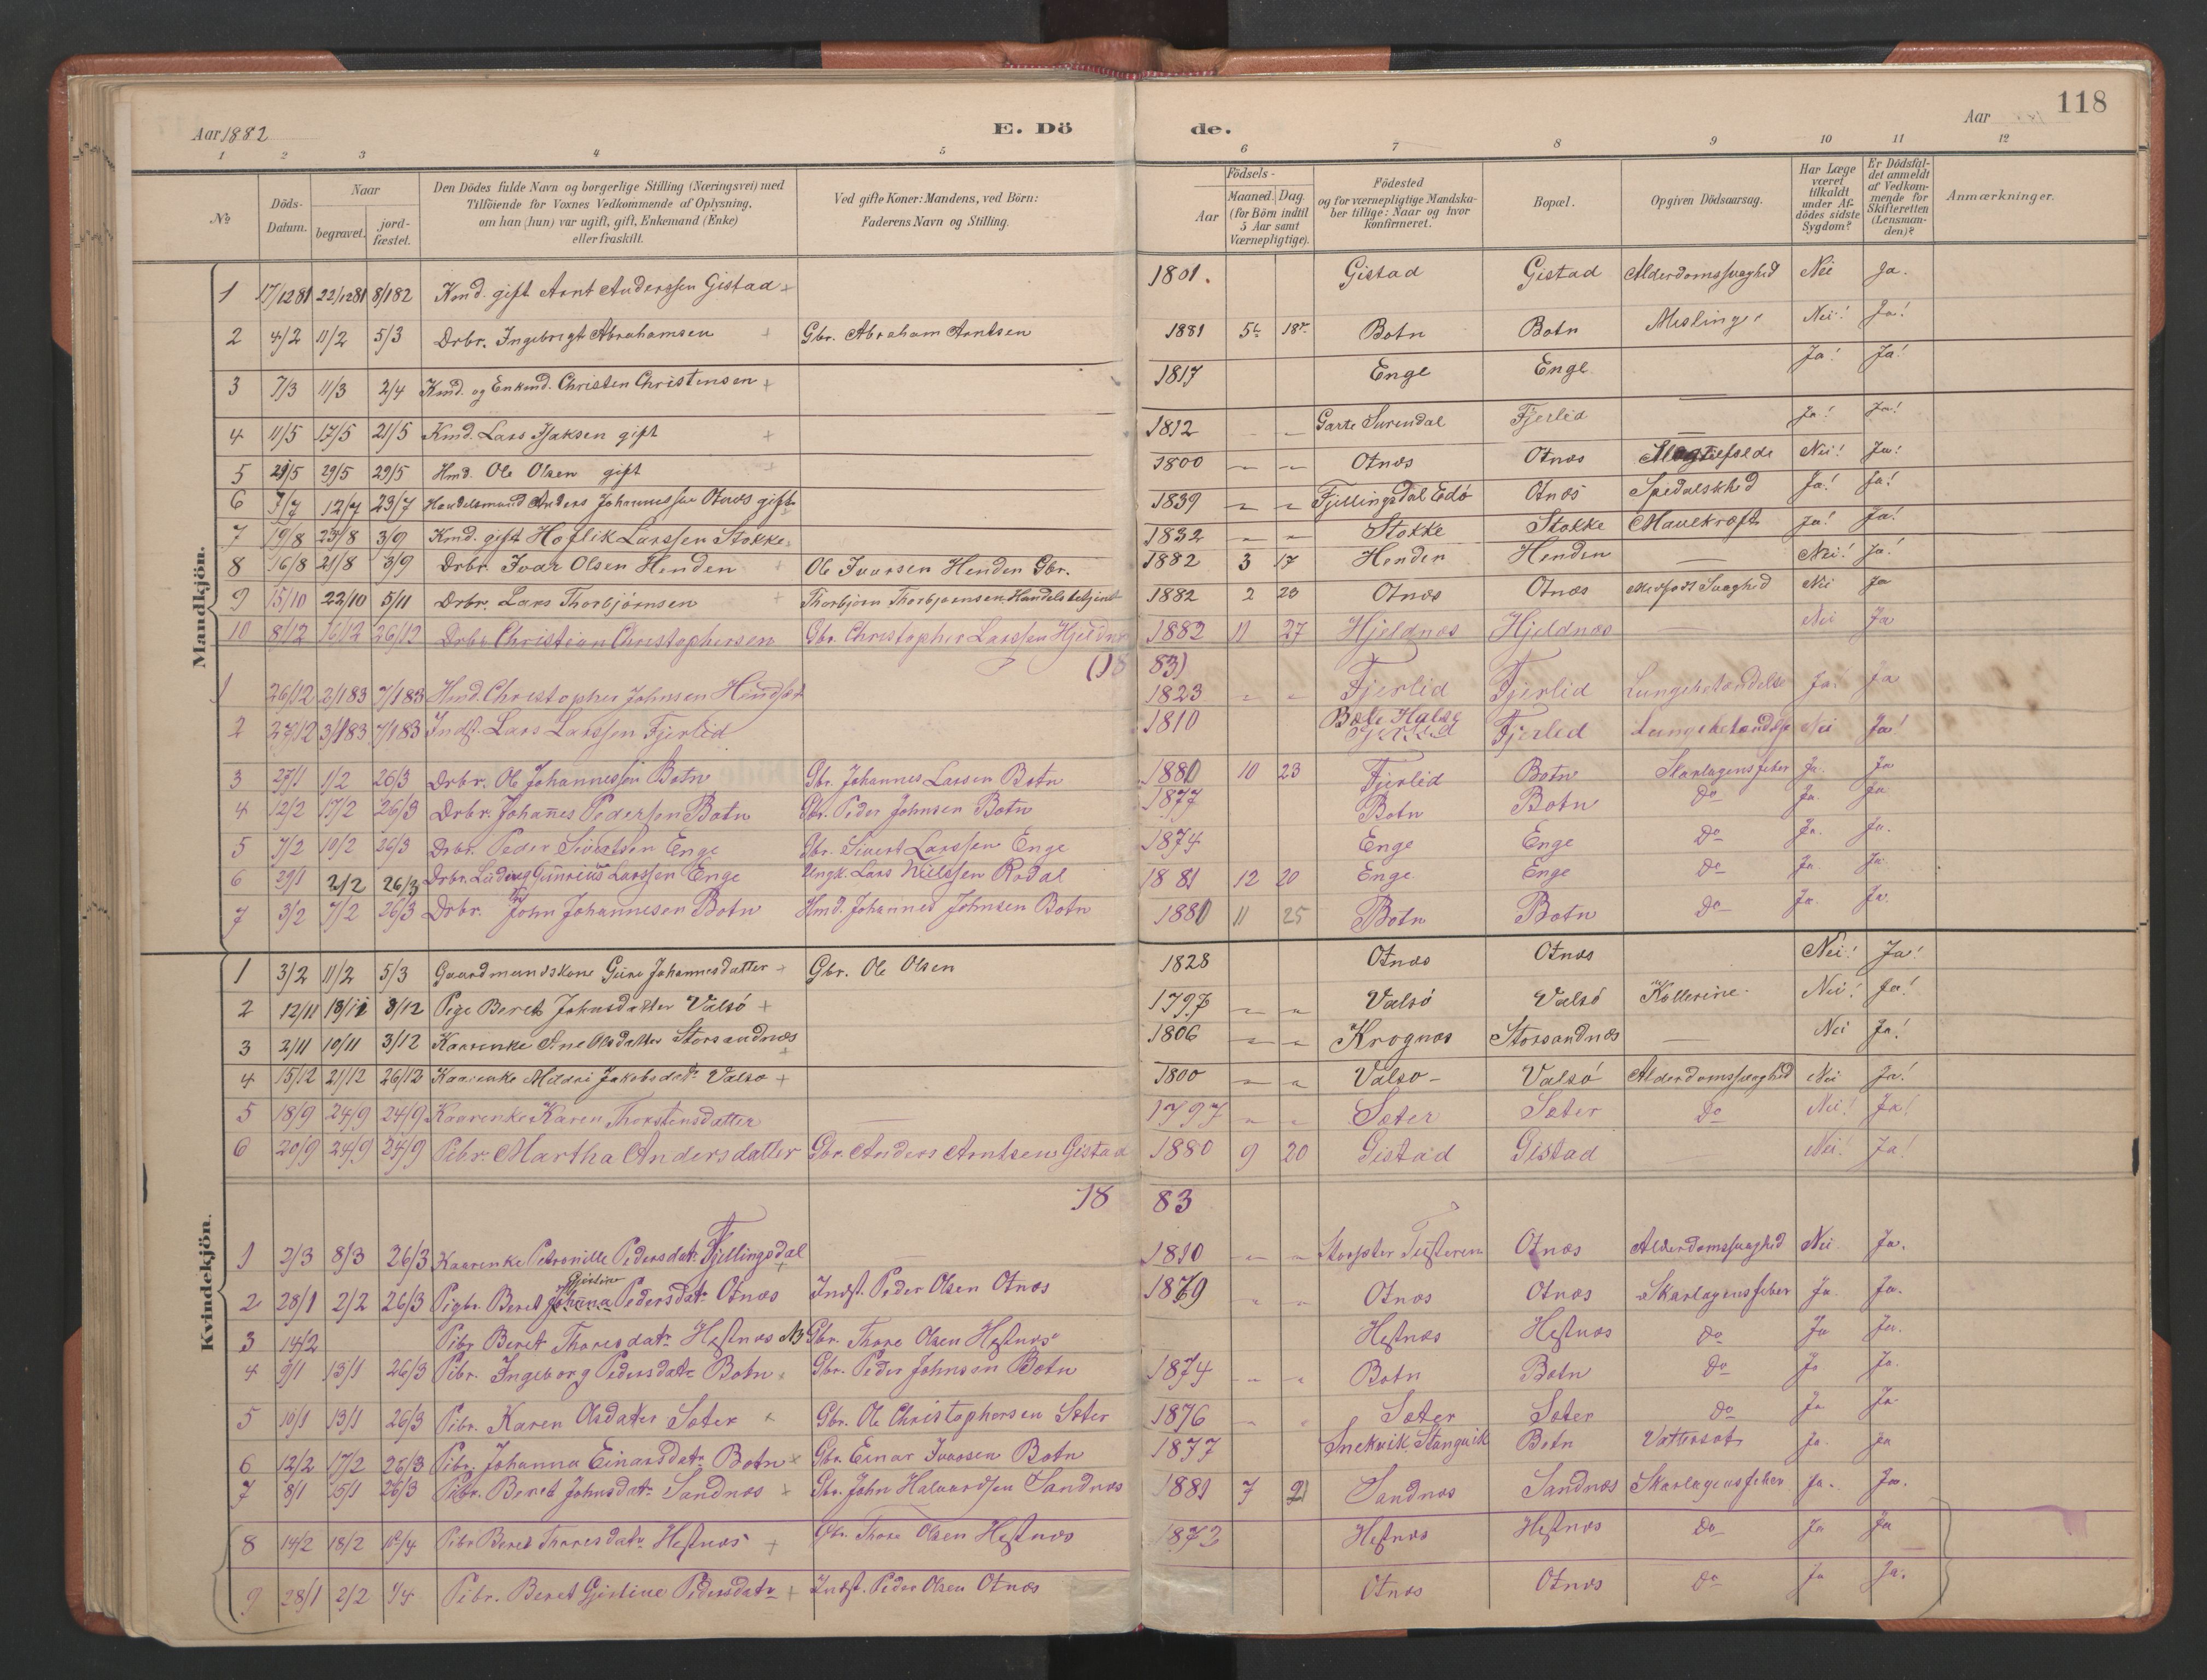 118
Aar 1882
E. Dö
de.
Aar
1 2 3 4 5 6 7 8 9 10 11 12
No
Döds-Datum.
Naar
begravet.
jord-fæstet.
Den Dödes fulde Navn og borgerlige Stilling (Næringsvei) med
Tilföiende for Voxnes Vedkommende af Oplysning,
om han (hun) var ugift, gift, Enkemand (Enke)
eller fraskilt.
Ved gifte Koner: Mandens, ved Börn:
Faderens Navn og Stilling.
Födsels-
Aar
Maaned. Dag.
(for Börn indtil
5 Aar samt
Værnepligtige).
Födested
og for værnepligtige Mandska-
ber tillige: Naar og hvor
konfirmeret.
Bopæl.
Opgiven Dödsaarsag.
Har Læge
været
tilkaldt
under Af-
dödes sidste
Sygdom?
Er Dödsfal-
det anmeldt
af Vedkom-
mende for
Skifteretten
(Lensman-
den)?
Anmærkninger.
Mandkjön.
1 17/12 81 22/12 81 8/1 82 Kmd. gift Arnt Anderssen Gistad + 1801. Gistad Gistad Alderdomssvaghed Nei Ja.
2 4/2 11/2 5/3 Drbr. Ingebrigt Abrahamsen + Gbr. Abraham Arntsen 1881 5 18 Botn Botn Meslinger Nei! Ja!
3 7/3 11/3 2/4 Kmd. og Enkmd. Christen Christensen + 1817 Enge Enge Ja! Ja!
4 11/5 17/5 21/5 Kmd. Lars Isaksen gift + 1812 Garte Surendal Fjerlid — Ja! Ja!
5 21/5 29/5 29/5 Hmd. Ole Olsen gift + 1800 Otnæs Otnæs Nei! Ja!
6 7/7 12/7 23/7 Handelsmand Anders Johannessen Otnæs gift + 1839 Fjellingsdal Edö Otnæs Spedalskhed Ja! Ja!
7 19/8 23/8 3/9 Kmd. gift Hoflik Larssen Stokke 1832 Stokke Stokke Mavekræft Ja! Ja!
8 16/8 21/8 3/9 Drbr. Ivar Olsen Henden + Ole Ivarsen Henden Gbr. 1882 3 17 Henden Henden — Nei! Ja!
9 15/10 22/10 5/11 Drbr. Lars Thorbjörnsen + Thorbjörn Thorbjörnsen Handelsbetjent 1882 2 23 Otnæs Otnæs Medfødt Svaghed Nei Ja
10 8/12 16/12 26/12 Drbr. Christian Christophersen Gbr. Christopher Larssen Hjeldnæs 1882 11 27 Hjeldnæs Hjeldnæs — Nei Ja
(18 83)
1 26/12 2/1 83 7/1 83 Hmd. Christopher Johnsen 1823 Fjerlid Fjerlid Lungebetændelse Ja. Ja
2 27/12 3/1 83 7/1 83 Indst. Lars Larssen Fjerlid 1810 Bøle Halse Fjerlid Lungebetændelse Nei Ja!
3 27/1 1/2 26/3 Drbr. Ole Johannessen Botn Gbr. Johannes Larsen Botn 1880 10 23 Fjerlid Botn Skarlagensfeber Ja. Ja
4 12/2 17/2 26/3 Drbr. Johanes Pedersen Botn Gbr. Peder Johnsen Botn 1877 Botn Botn Do Ja. Ja
5 7/2 10/2 26/3 Drbr. Peder Sivertsen Enge Gbr. Sivert Larssen Enge 1874 Enge Enge Do Ja. Ja.
6 29/1 2/2 26/3 Drbr. Ludvig Gunnerius Larssen Enge Ungk. Lars Nielssen Rodal 1881 12 20 Enge Enge Do Ja. Ja.
7 3/2 7/2 26/3 Drbr. John Johannesen Botn Hmd. Johannes Johnsen Botn 1881 11 25 Botn Botn Do Ja. Ja.
Kvindekjön.
1 3/2 11/2 5/3 Gaardmandskone Johannesdatter + Gbr. Ole Olsen 1828 Otnæs Otnæs Nei! Ja!
2 12/11 18/11 3/12 Pige Beret Johnsdatter Valsö + 1797 Valsö Valsö Kollerine Nei! Ja!
3 2/11 10/11 3/12 Kaarenke Ane Olsdatter Storsandnæs + 1806 Krognæs Storsandnæs — Nei Ja!
4 15/12 21/12 26/12 Kaarenke Jakobsdatr Valsö + 1800 Valsö Valsö Alderdomssvaghed Nei Ja!
5 18/9 24/9 24/9 Kaarenke Karen Thorstensdatter — 1797 Sæter Sæter Do Nei! Ja!
6 20/9 24/9 24/9 Pibr. Martha Andersdatter Gbr. Anders Arntsen Gistad 1880 9 20 Gistad Gistad Nei! Ja!
18 83
1 2/3 8/3 26/3 Kaarenke Petronille Pedersdatr Fjellingsdal + 1810 Tusteren Otnæs Alderdomssvaghed Nei Ja.
2 28/1 2/2 26/3 Pigbr. Beret Gjertine Johanna Pedersdatr Otnæs Indst. Peder Olsen Otnæs 1879 Otnæs Otnæs Skarlagensfeber Ja. Ja.
3 14/2 Pibr Beret Thoresdatr Hestnæs NB Gbr. Thore Olsen Hestnæs Hestnæs Hestnæs Do Ja Ja.
4 9/1 13/1 26/3 Pibr. Ingeborg Pedersdatr Botn Gbr. Peder Johnsen Botn 1874 Botn Botn Do Ja Ja.
5 10/1 13/1 26/3 Pibr. Karen Olsdatter Sæter Gbr. Ole Christophersen Sæter 1876 Sæter Sæter Do Ja Ja
6 12/2 17/2 26/3 Pibr. Johanna Einarsdatr Botn Gbr. Einar Ivarsen Botn 1877 Snekvik Stangvik Botn Vattersot Ja. Ja
7 8/1 15/1 26/3 Pibr. Beret Johnsdatr Sandnæs + Gbr. John Halvardsen Sandnæs 1881 7 21 Sandnæs Sandnæs Skarlagensfeber Ja. Ja.
8 14/2 18/2 Pibr Beret Thoresdatr Hestnæs + Gbr. Thore Olsen Hestnæs 1872 Hestnæs Hestnæs Do Ja Ja
9 28/1 2/2 1/4 Pibr. Beret Gjertine Pedersdatr + Indst. Peder Olsen Otnæs Otnæs Otnæs Do Ja Ja.